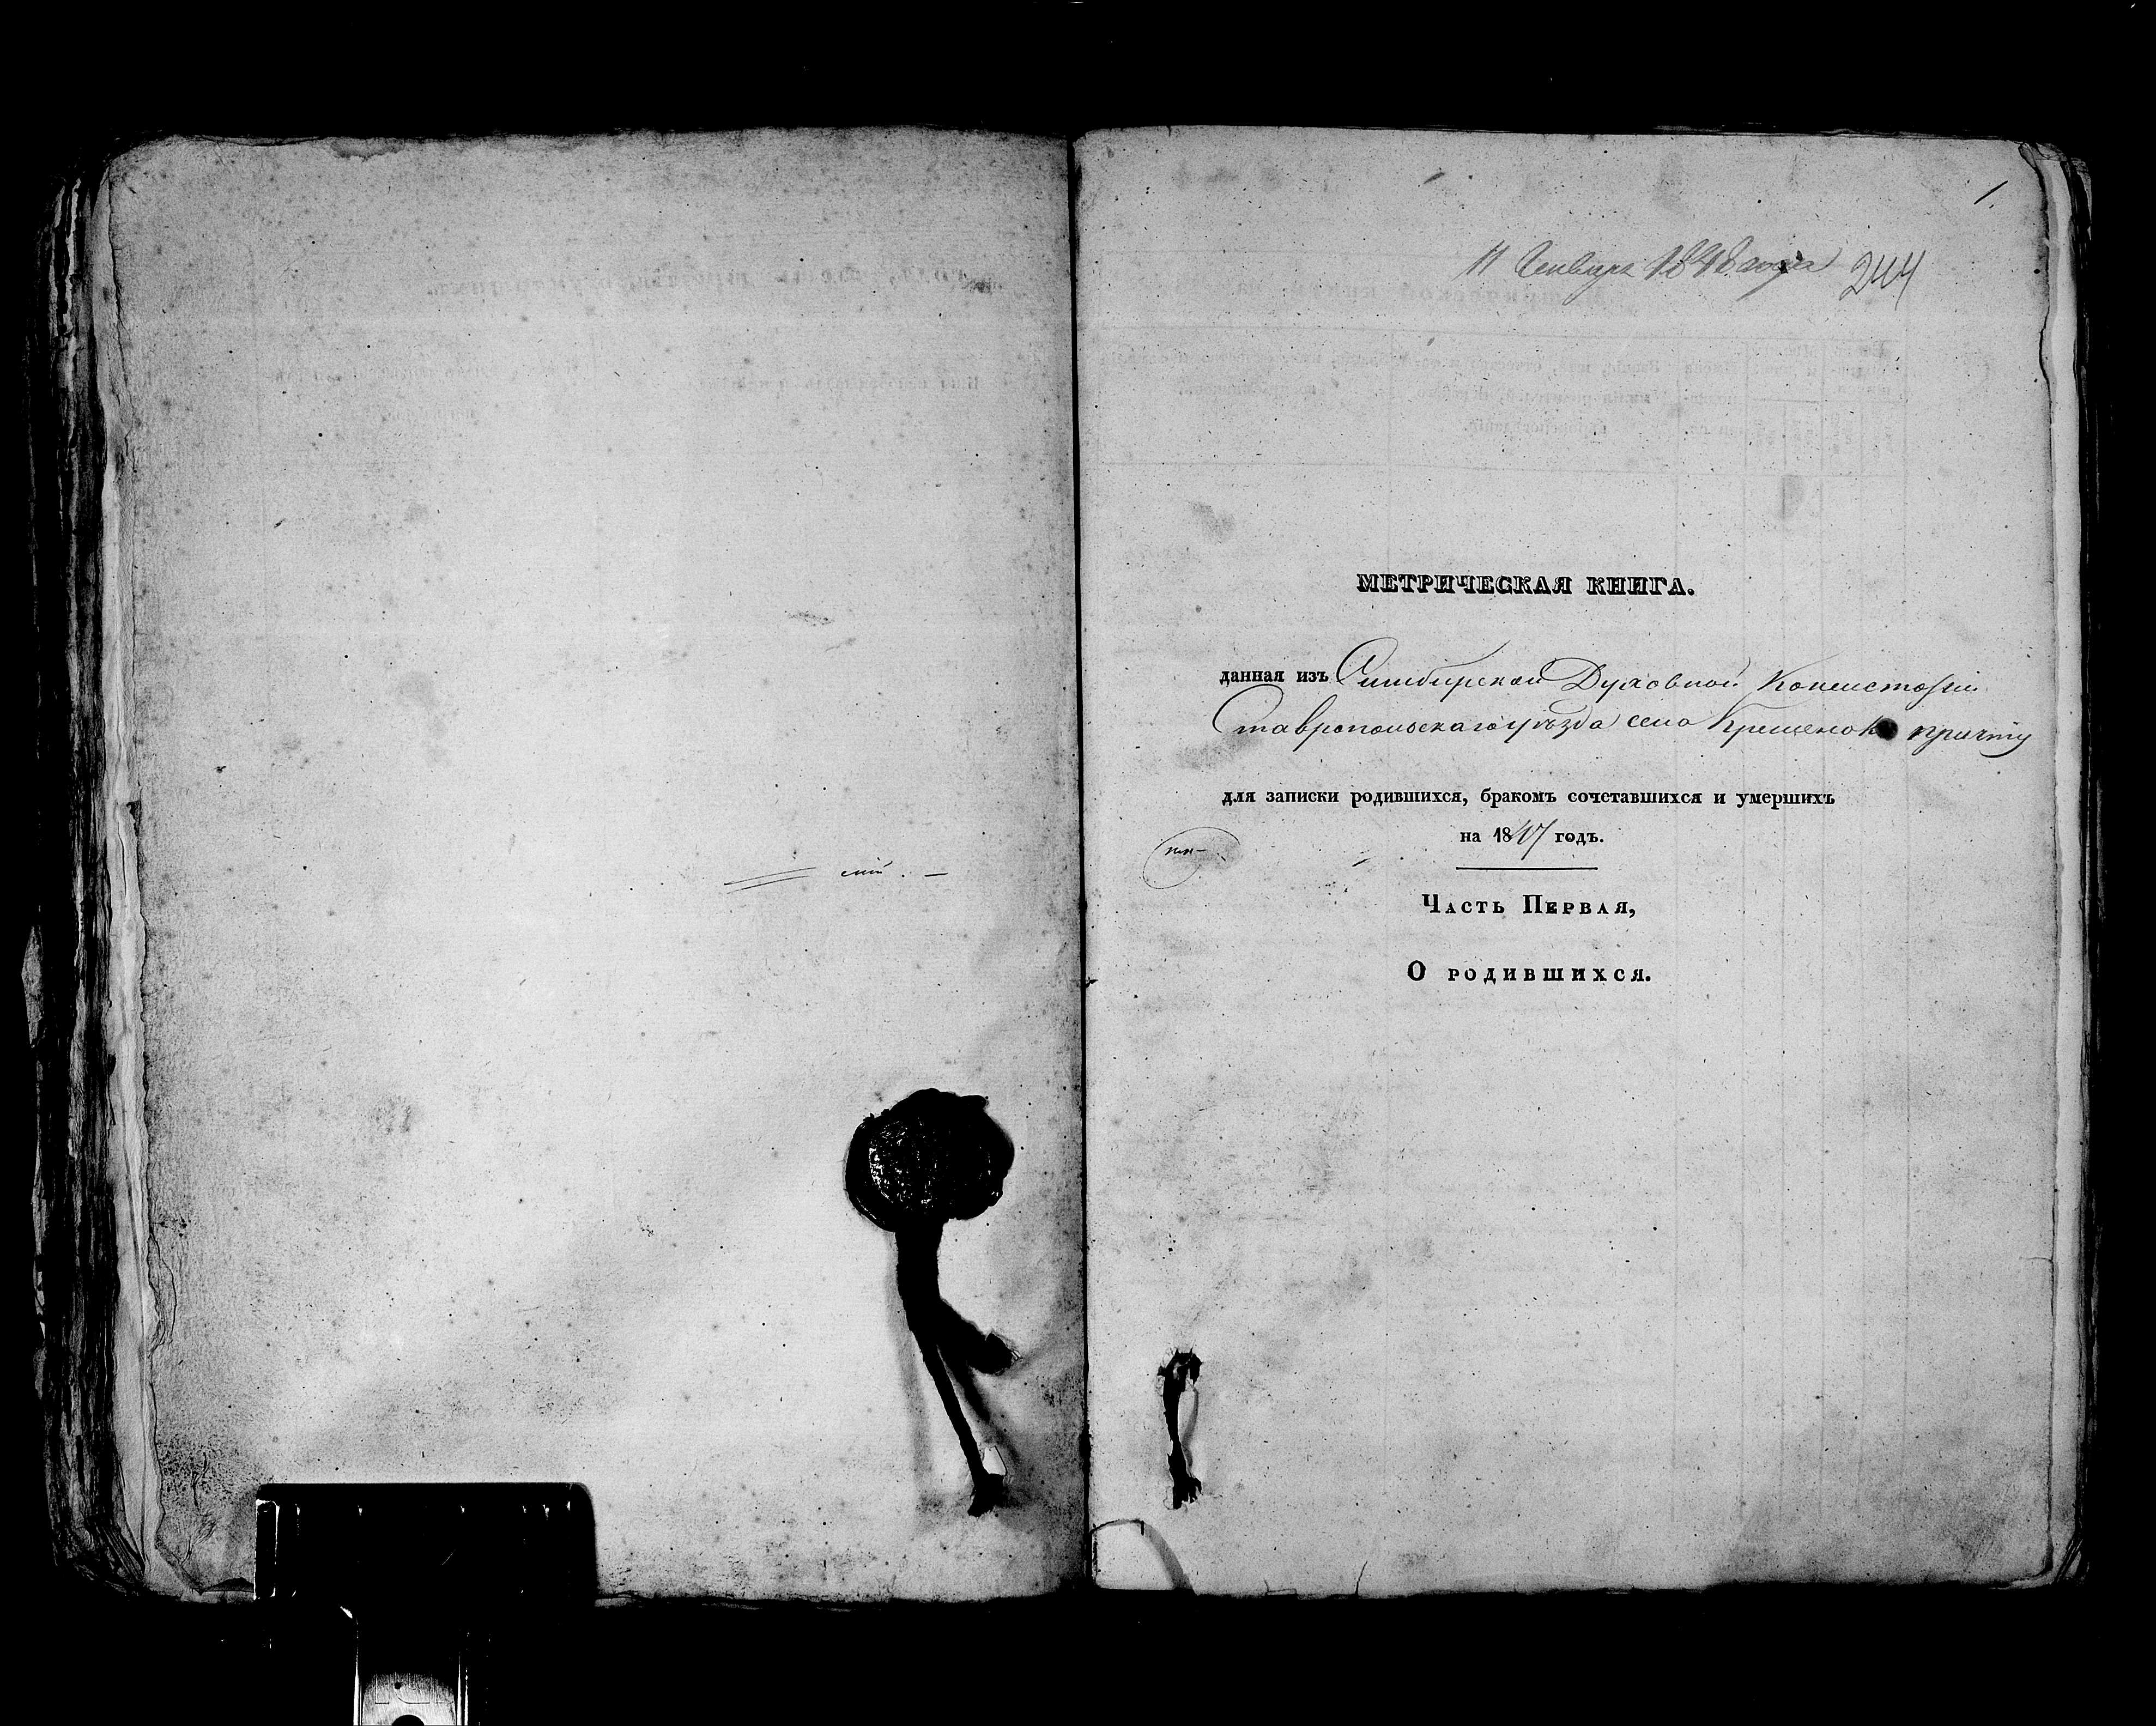 1.
11 Генваря 1848 года 244
МЕТРИЧЕСКАЯ КНИГА.
данная изъ Симбирской Духовной Консисторiи
Ставропольскаго уѣзда села Крещенокъ причту
для записки родившихся, бракомъ сочетавшихся и умершихъ
на 1847 годъ.
Часть Первая,
О родившихся.